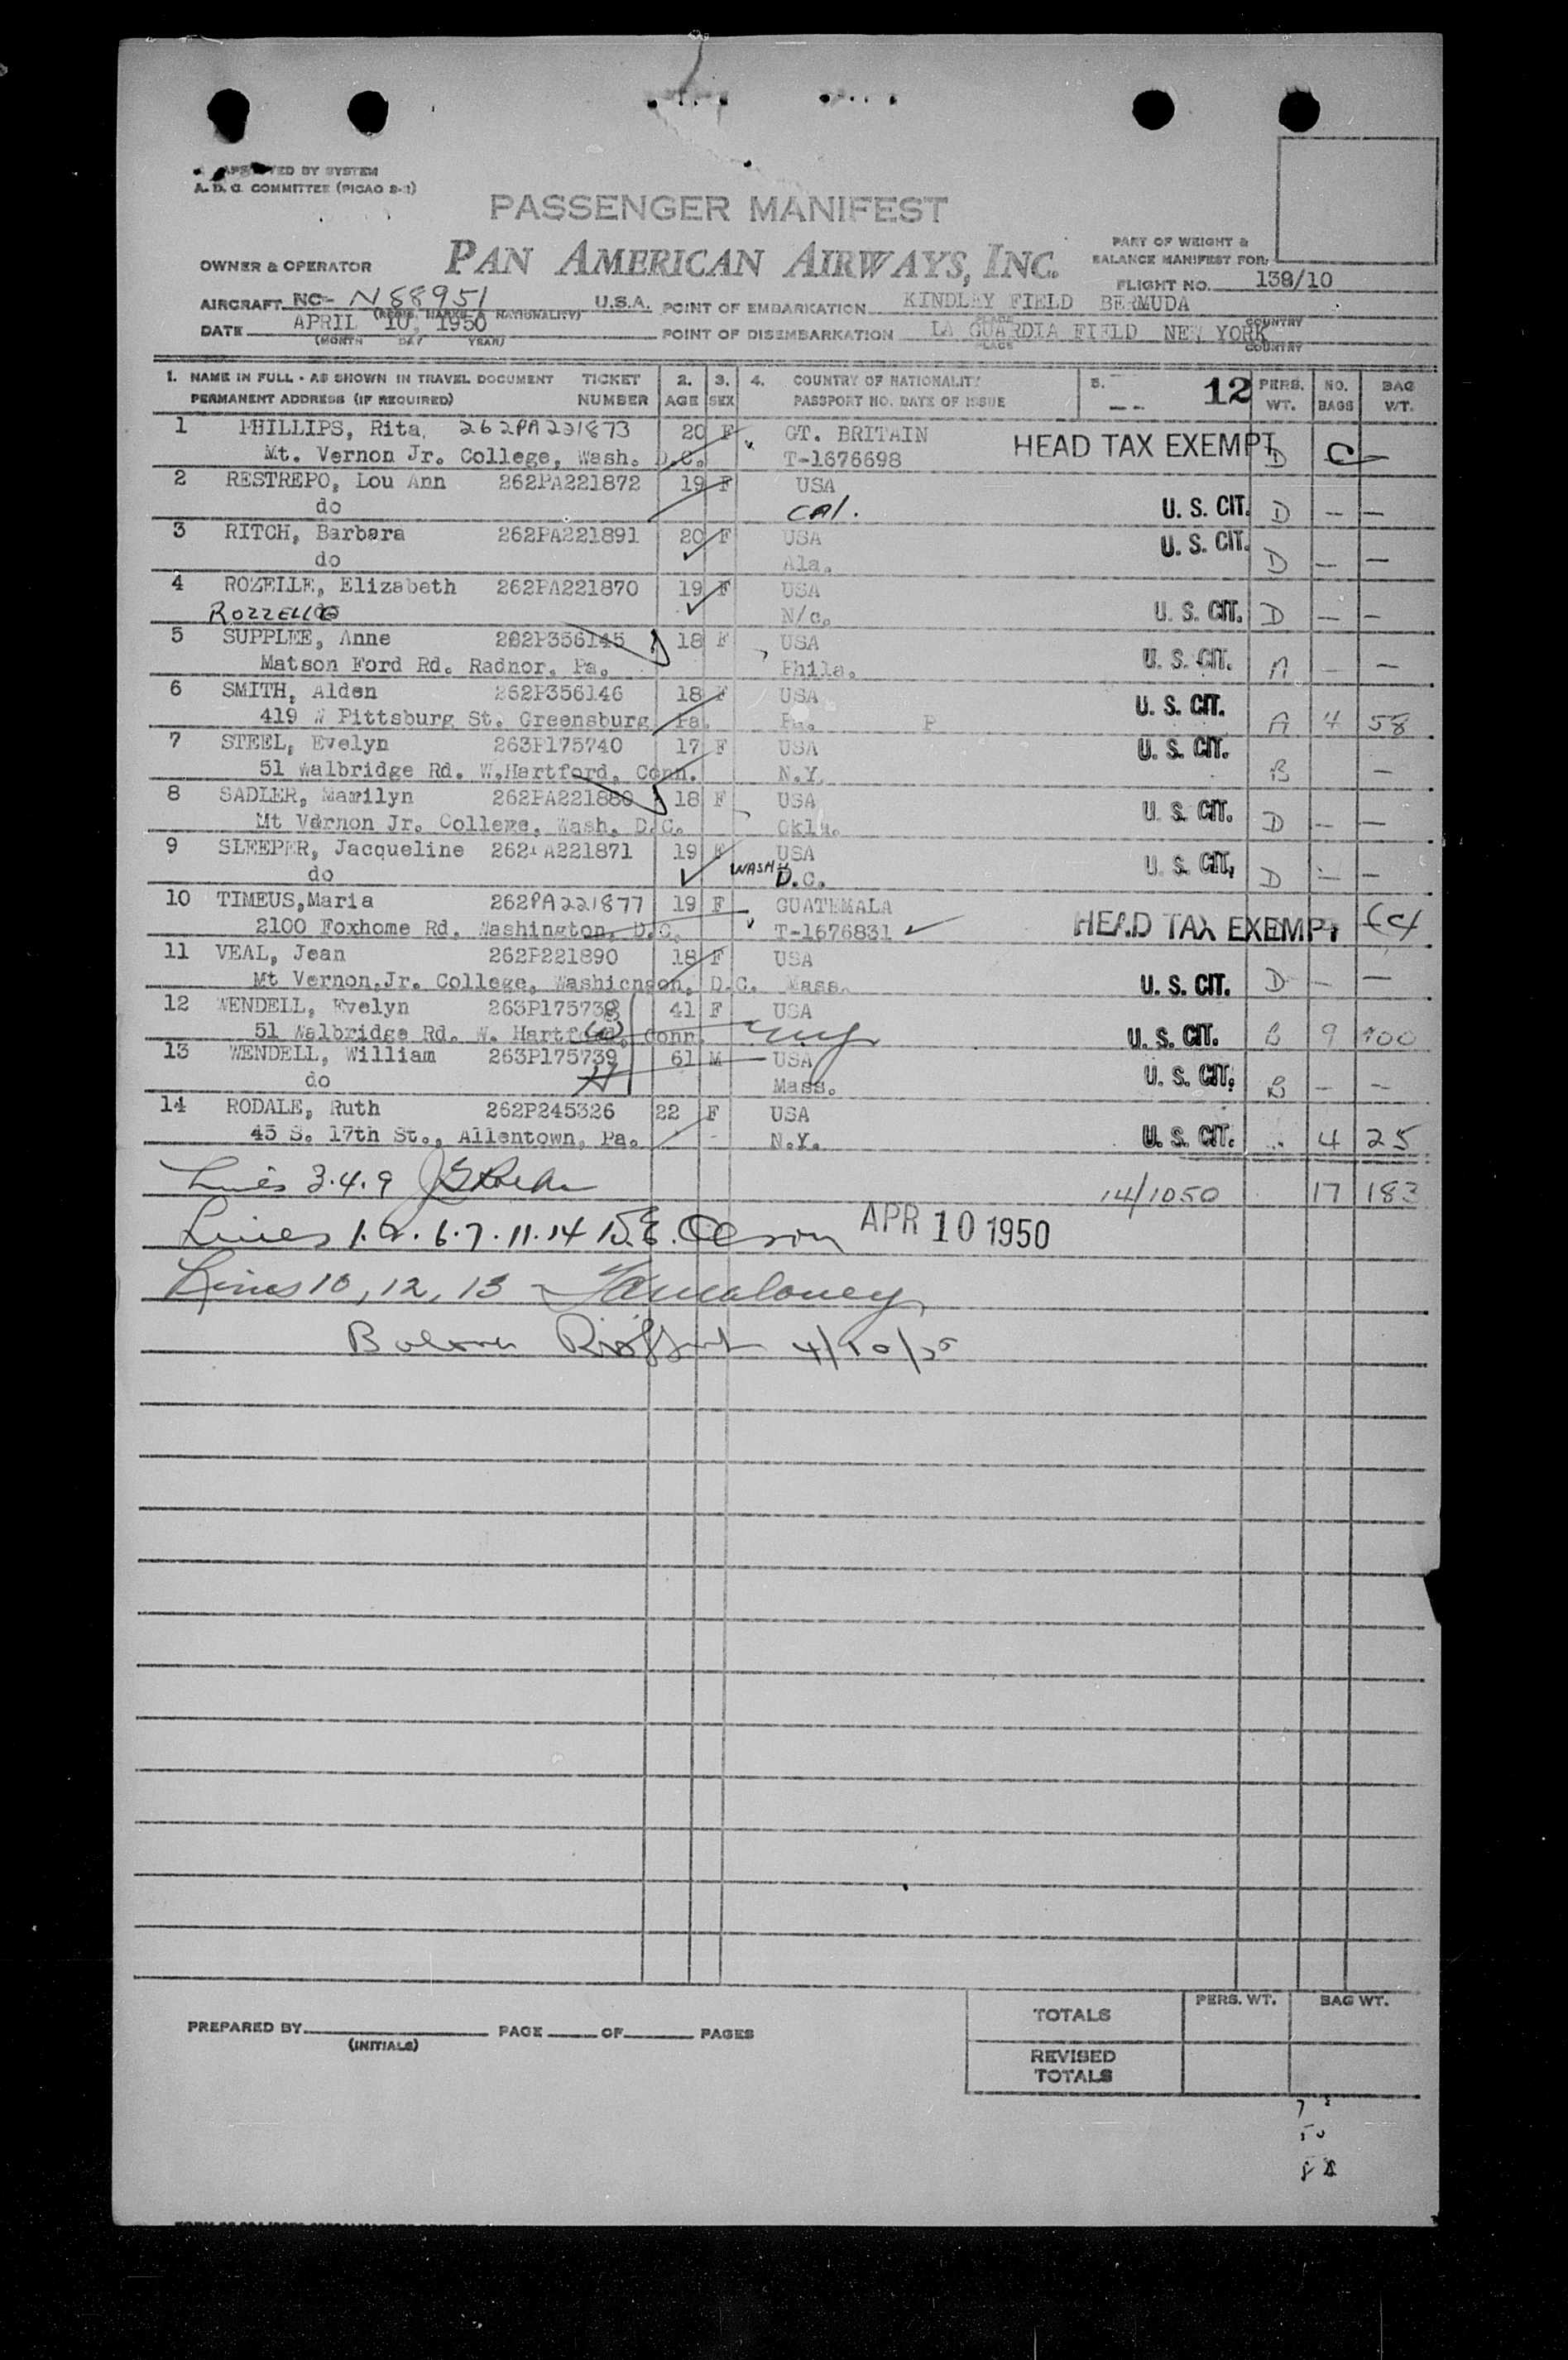 APPROVED BY SYSTEM
A. D. C. COMMITTEE (PICAO 2-1)
PASSENGER MANIFEST
PAN AMERICAN AIRWAYS, INC.
PART OF WEIGHT &
BALANCE MANIFEST FOR:
OWNER & OPERATOR
FLIGHT NO. 138/10
AIRCRAFT NC- N88951 U.S.A. POINT OF EMBARKATION KINDLEY FIELD BERMUDA
(REGIS. MARKS & NATIONALITY) PLACE COUNTRY
DATE APRIL 10, 1950 POINT OF DISEMBARKATION LA GUARDIA FIELD NEW YORK
(MONTH DAY YEAR) PLACE COUNTRY
1. NAME IN FULL - AS SHOWN IN TRAVEL DOCUMENT TICKET 2. 3. 4. COUNTRY OF NATIONALITY 5. 12 PERS. NO. BAG
PERMANENT ADDRESS (IF REQUIRED) NUMBER AGE SEX PASSPORT NO. DATE OF ISSUE -- WT. BAGS WT.
1 PHILLIPS, Rita 262PA221873 20 F GT. BRITAIN HEAD TAX EXEMPT
Mt. Vernon Jr. College, Wash. D.C. T-1676698 D
2 RESTREPO, Lou Ann 262PA221872 19 F USA
do CAl. U. S. CIT. D — —
3 RITCH, Barbara 262PA221891 20 F USA U. S. CIT.
do Ala. D — —
4 ROZELLE, Elizabeth 262PA221870 19 F USA
ROZZELLE do N/c. U. S. CIT. D — —
5 SUPPLEE, Anne 262P356145 18 F USA
Matson Ford Rd. Radnor, Pa. Phila. U. S. CIT. A — —
6 SMITH, Alden 262P356146 18 F USA U. S. CIT.
419 W Pittsburg St. Greensburg Pa. Pa. P A 4 58
7 STEEL, Evelyn 263P175740 17 F USA U. S. CIT.
51 Walbridge Rd. W.Hartford, Conn. N.Y. B —
8 SADLER, Mamrilyn 262PA221880 18 F USA
Mt Vernon Jr. College, Wash, D.C. Okla. U. S. CIT. D — —
9 SLEEPER, Jacqueline 262PA221871 19 F USA
do WASH D.C. U. S. CIT. D — —
10 TIMEUS,Maria 262PA221877 19 F GUATEMALA
2100 Foxhome Rd, Washington, D.C. T-1676831 HEAD TAX EXEMPT
11 VEAL, Jean 262P221890 18 F USA
Mt Vernon,Jr. College, Washicngon, D.C. Mass. U. S. CIT. D — —
12 WENDELL, Evelyn 263P175738 41 F USA
51 Walbridge Rd. W. Hartford, Conn. U. S. CIT. B 9 100
13 WENDELL, William 263P175739 61 M USA
do Mass. U. S. CIT. B — —
14 RODALE, Ruth 262P245326 22 F USA
45 S. 17th St., Allentown, Pa. N.Y. U. S. CIT. 4 25
Lines 3.4.9 14/1050 17 183
Lines 1.2.6.7.11.14 Olson APR 10 1950
Lines 10, 12, 13 - Maloney
4/10/50
PREPARED BY PAGE OF PAGES
(INITIALS)
TOTALS PERS. WT. BAG WT.
REVISED
TOTALS